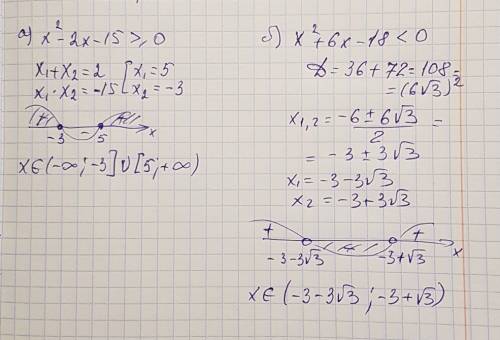 а) x²-2x-15⩾0
x₁+x₂=2 [x₁=5
x₁·x₂=-15 [x₂=-3
+ - +
-3 5 x
x∈(-∞;-3]∪[5;+∞)
б) x²+6x-18<0
D=36+72=108=
=(6√3)²
x₁,₂=(-6±6√3)/2=
=-3±3√3
x₁=-3-3√3
x₂=-3+3√3
+ - +
-3-3√3 -3+√3 x
x∈(-3-3√3;-3+√3)